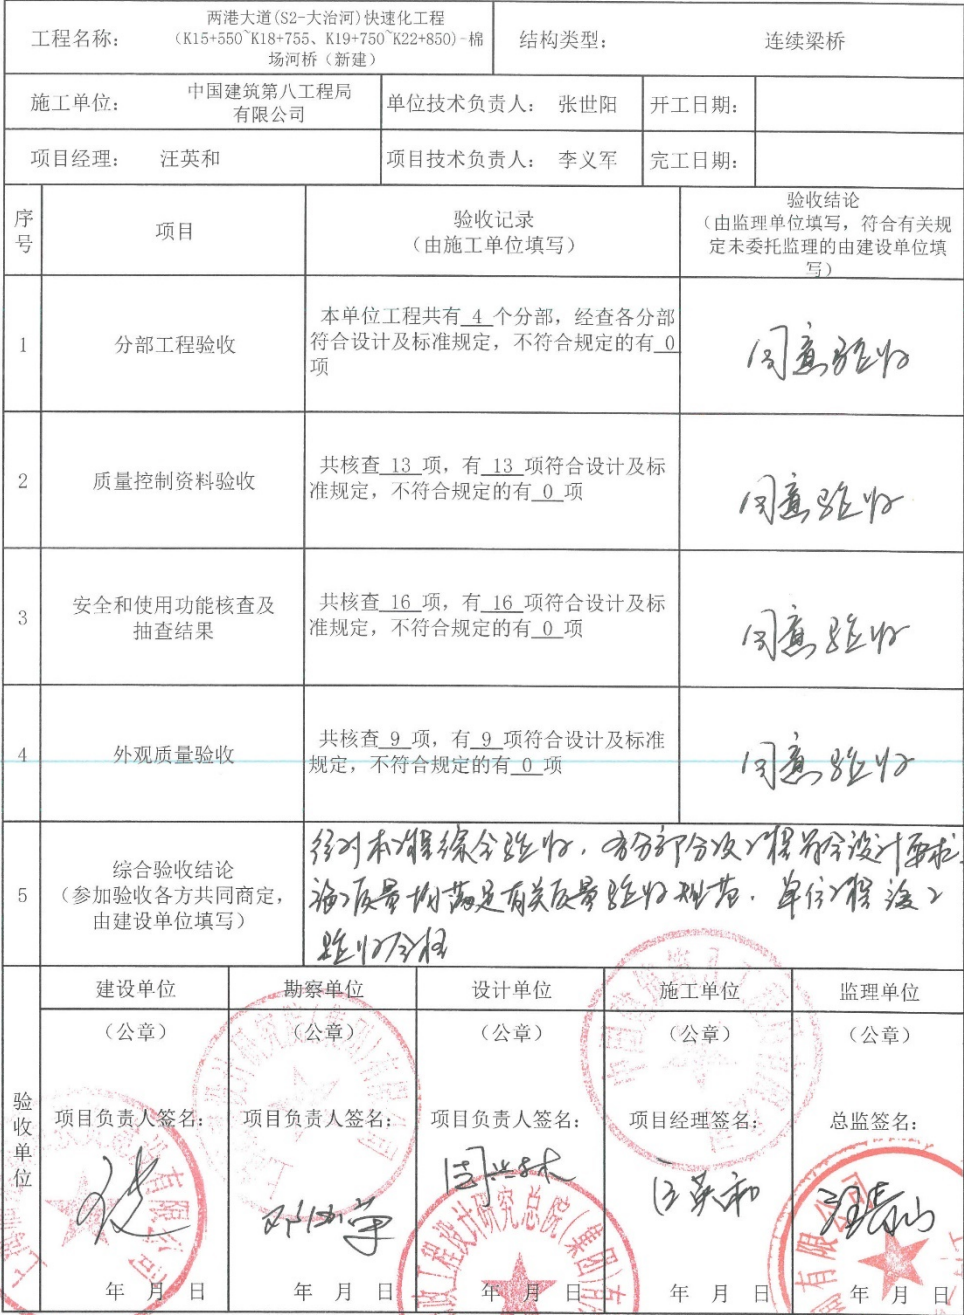 工程名称：
两港大道(S2-大治河)快速化工程
（K15+550~K18+755、K19+750~K22+850)-棉
场河桥（新建）
结构类型：
连续梁桥
施工单位：
中国建筑第八工程局
有限公司
单位技术负责人：
张世阳
开工日期：
项目经理：
汪英和
项目技术负责人：
李义军
完工日期：
序
号
项目
验收记录
（由施工单位填写）
验收结论
（由监理单位填写，符合有关规
定未委托监理的由建设单位填
写）
1
分部工程验收
本单位工程共有 4 个分部，经查各分部
符合设计及标准规定，不符合规定的有 0
项
同意验收
2
质量控制资料验收
共核查 13 项，有 13 项符合设计及标
准规定，不符合规定的有 0 项
同意验收
3
安全和使用功能核查及
抽查结果
共核查 16 项，有 16 项符合设计及标
准规定，不符合规定的有 0 项
同意验收
4
外观质量验收
共核查 9 项，有 9 项符合设计及标准
规定，不符合规定的有 0 项
同意验收
5
综合验收结论
（参加验收各方共同商定，
由建设单位填写）
经对本工程综合验收，各分部分项工程符合设计要求，
施工质量均满足有关质量验收规范，单位工程竣工
验收合格
验
收
单
位
建设单位
勘察单位
设计单位
施工单位
监理单位
（公章）
（公章）
（公章）
（公章）
（公章）
项目负责人签名：
项目负责人签名：
项目负责人签名：
项目经理签名：
总监签名：
汪英和
年 月 日
年 月 日
年 月 日
年 月 日
年 月 日
有限公司
工程设计研究总院（集团）有
有限公司